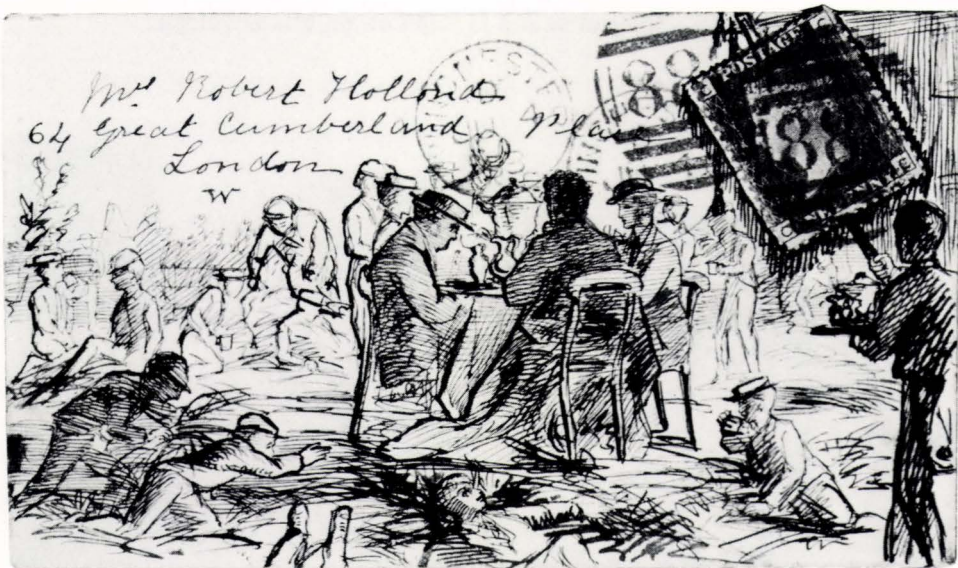 Mrs Robert Hollond
64 Great Cumberland Place
London
W
POSTAGE
88
88